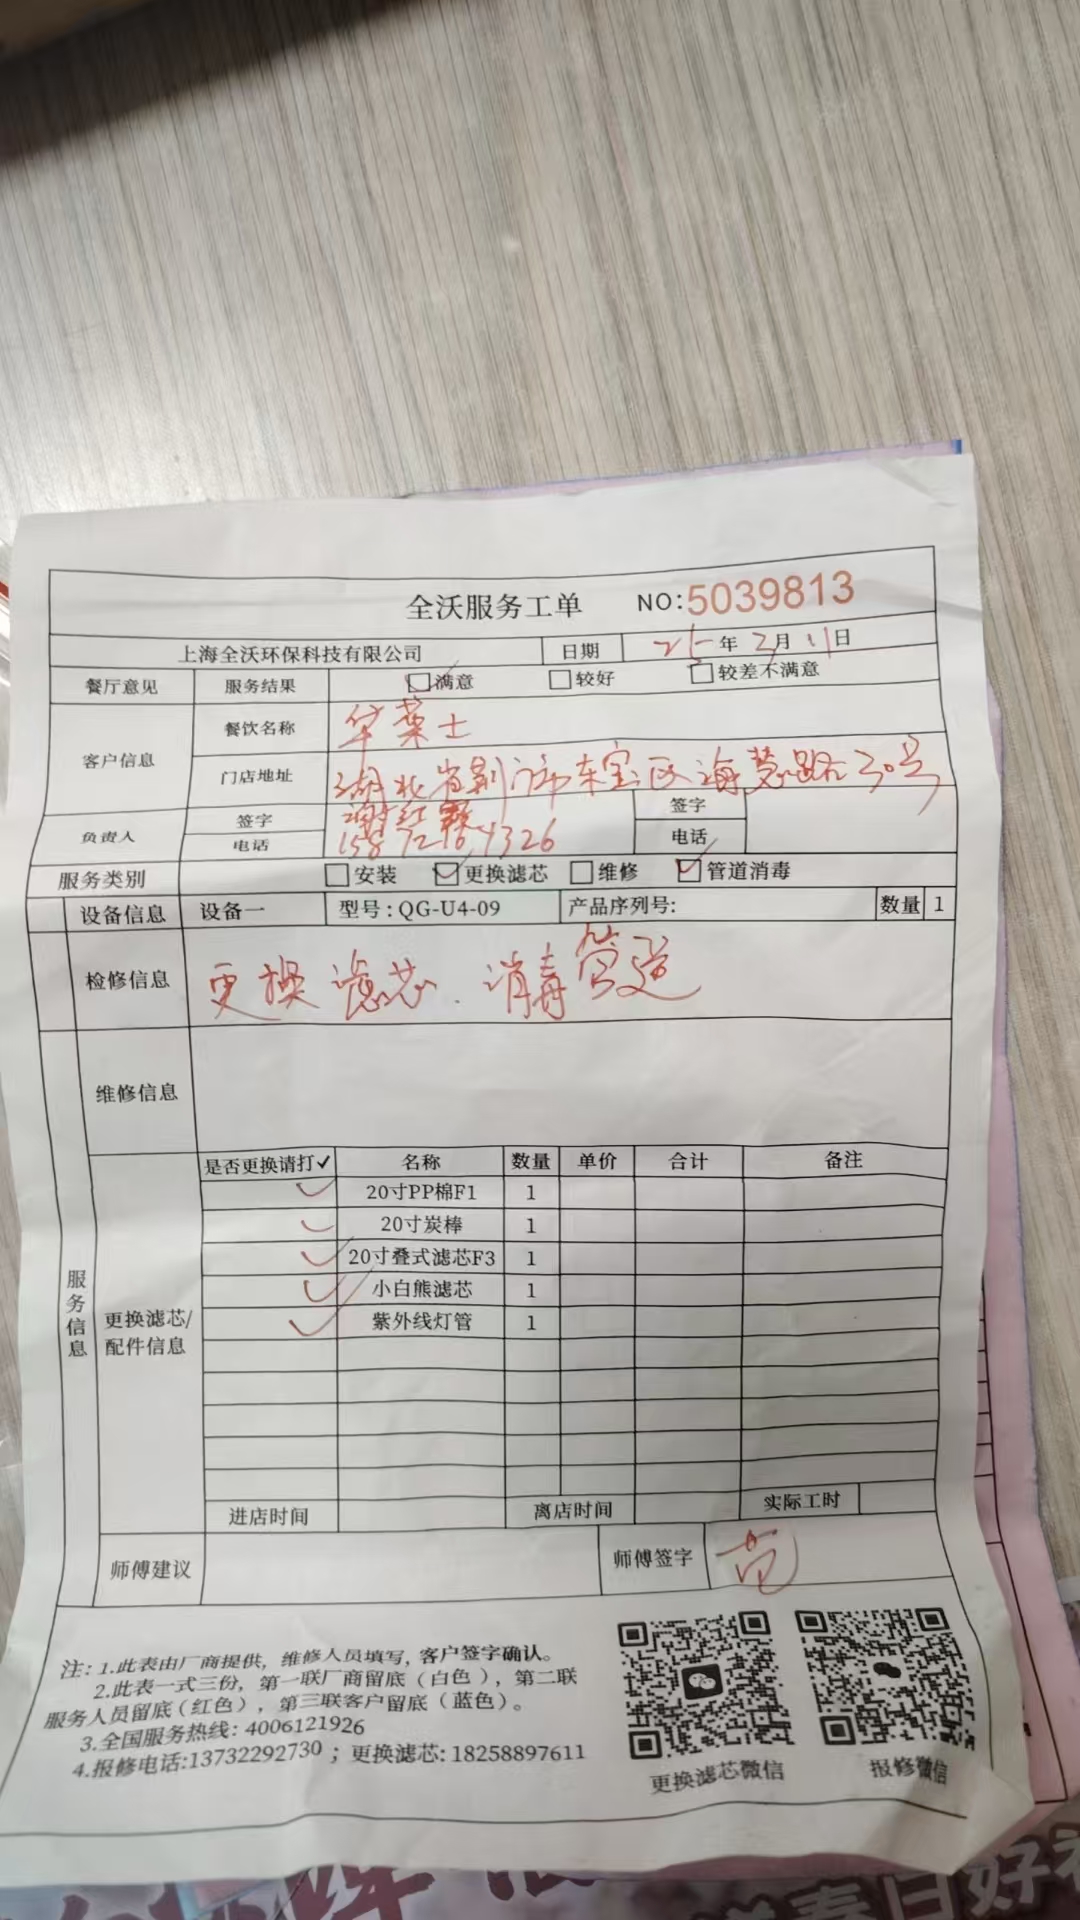 全沃服务工单 NO:5039813
上海全沃环保科技有限公司 日期 25年2月11日
餐厅意见 服务结果 满意 较好 较差不满意
客户信息 餐饮名称 华莱士
门店地址 湖北省荆门市东宝区海慧路30号
负责人 签字 签字
电话 电话
服务类别 安装 更换滤芯 维修 管道消毒
设备信息 设备一 型号:QG-U4-09 产品序列号: 数量 1
检修信息 更换滤芯.消毒管道
维修信息
服务信息
更换滤芯/配件信息
是否更换请打✓ 名称 数量 单价 合计 备注
✓ 20寸PP棉F1 1
✓ 20寸炭棒 1
✓ 20寸叠式滤芯F3 1
✓ 小白熊滤芯 1
✓ 紫外线灯管 1
进店时间 离店时间 实际工时
师傅建议 师傅签字
注:1.此表由厂商提供,维修人员填写,客户签字确认。
2.此表一式三份,第一联厂商留底(白色),第二联
服务人员留底(红色),第三联客户留底(蓝色)。
3.全国服务热线:4006121926
4.报修电话:13732292730;更换滤芯:18258897611
更换滤芯微信 报修微信